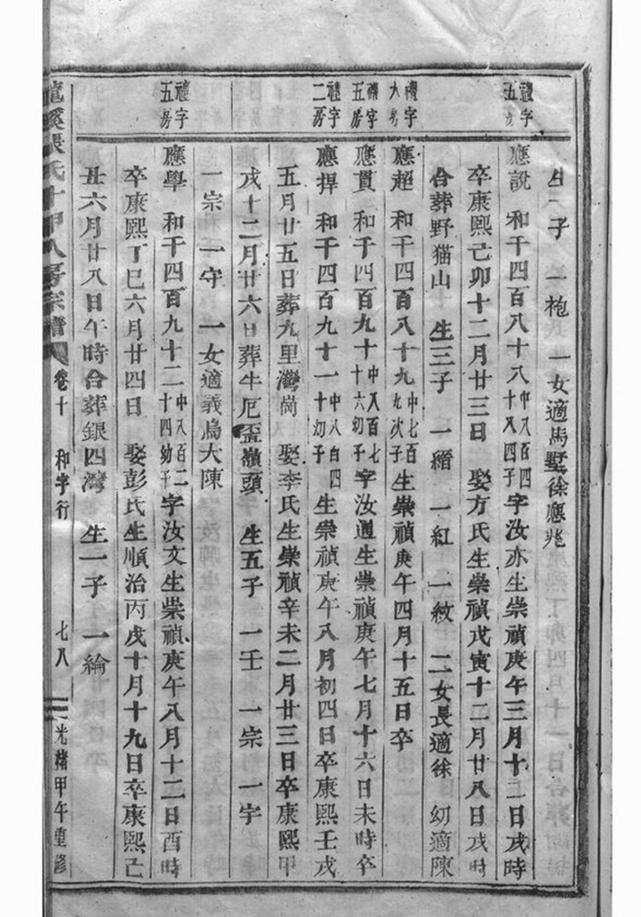 生一子 一袍 一女適馬墅徐應兆
禮字
五房
應説 和千四百八十八 中八百四十八四子 字汝亦生崇禎庚午三月十二日戌時
卒康熙己卯十二月廿三日 娶方氏生崇禎戊寅十二月廿八日戌時
合葬野猫山 生三子 一縉 一紅 一紋 二女長適徐 幼適陳
禮字
大房
應超 和千四百八十九 中七百九次子 生崇禎庚午四月十五日卒
禮字
五房
應貫 和千四百九十 中八百七十六幼子 字汝通生崇禎庚午七月十六日未時卒
禮字
二房
應捍 和千四百九十一 中八百四十幼子 生崇禎庚午八月初四日卒康熙壬戌
五月廿五日葬九里灣崗 娶李氏生崇禎辛未二月廿三日卒康熙甲
戌十二月廿六日葬牛厄歪嶺頭 生五子 一壬 一宗 一字
一宗 一守 一女適義烏大陳
禮字
五房
應學 和千四百九十二 中八百二十四幼子 字汝文生崇禎庚午八月十二日酉時
卒康熙丁巳六月廿四日 娶彭氏生順治丙戌十月十九日卒康熙己
丑六月廿八日午時合葬銀四灣 生一子 一綸
龍溪張氏十甲八房宗譜 卷十 和字行 七八 光緒甲午重修